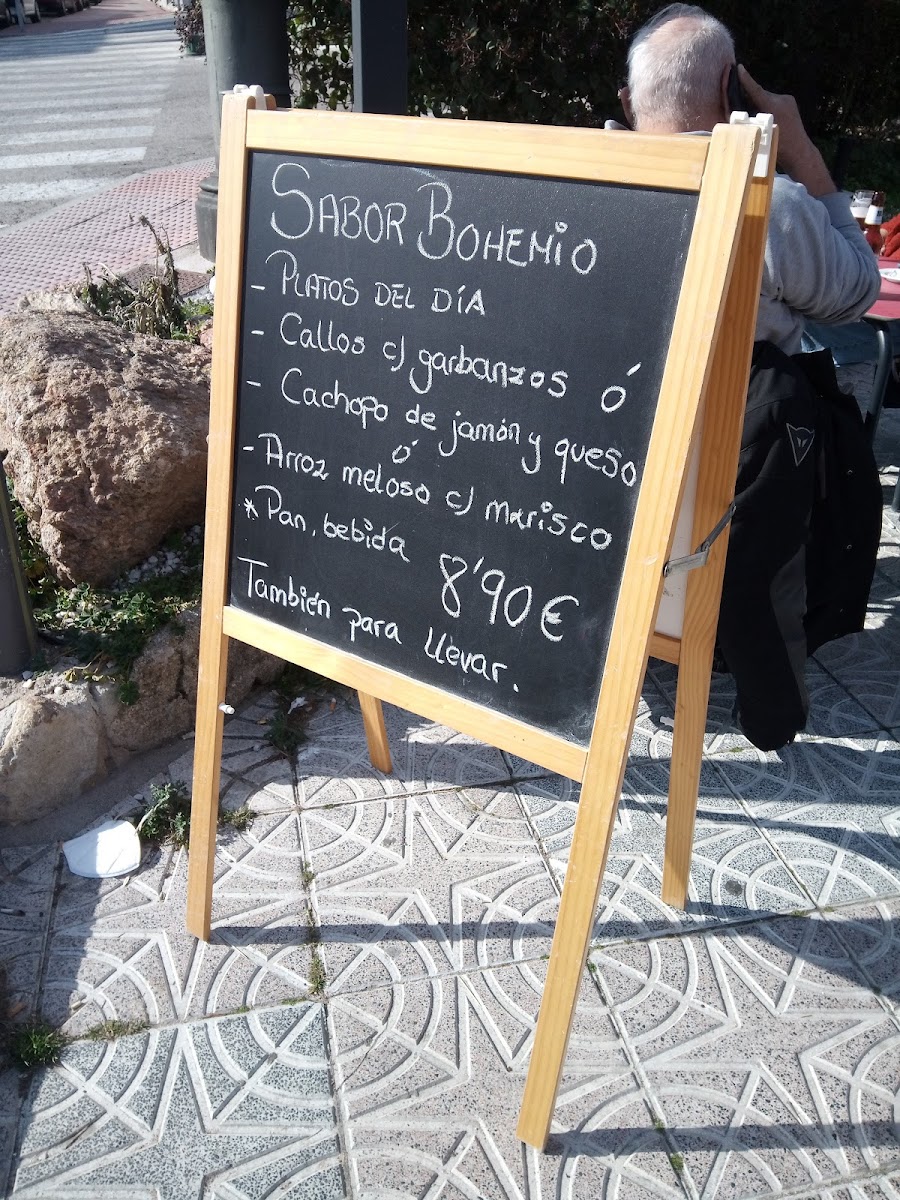 SABOR BOHEMIO
- PLATOS DEL DÍA
- Callos c/ garbanzos ó
- Cachopo de jamón y queso
ó
- Arroz meloso c/ marisco
* Pan, bebida 8'90€
También para llevar.